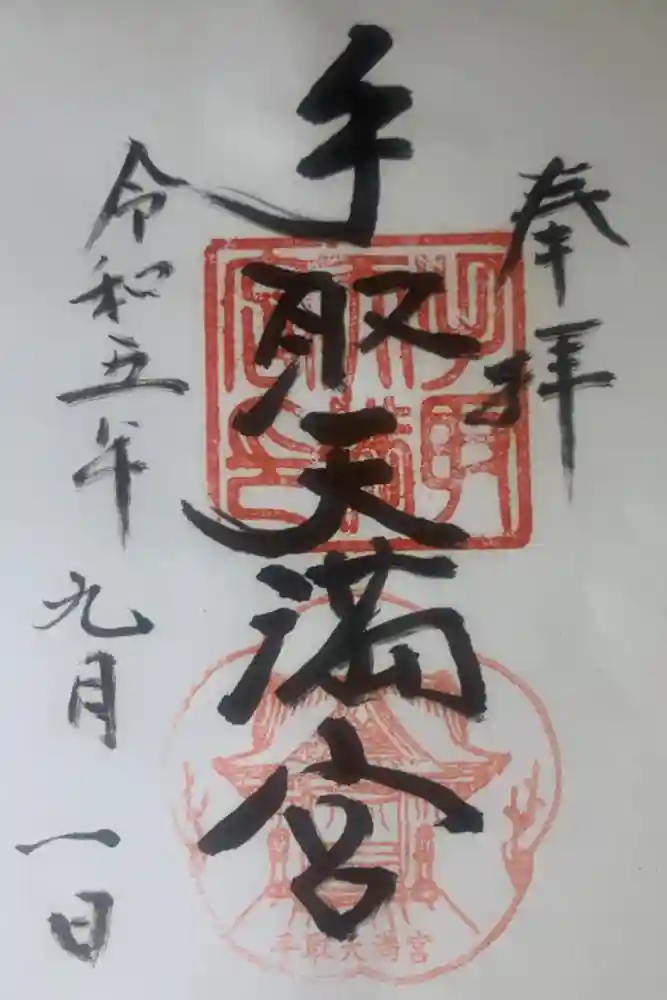 奉拝
手取天満宮
令和五年九月一日
手取天満宮